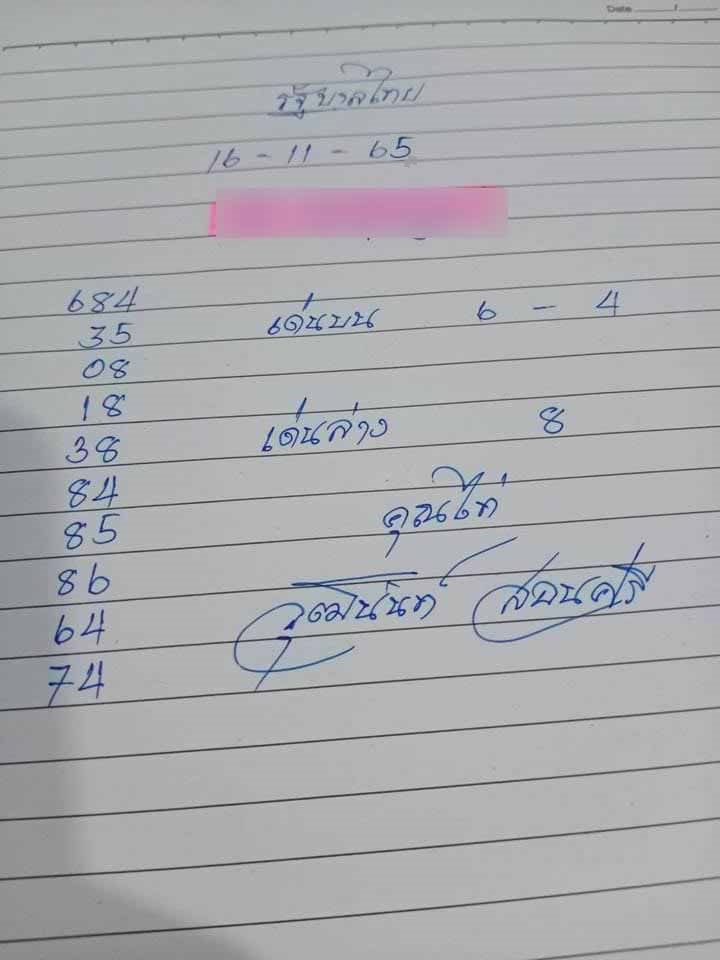 Date ......../........
รัฐบาลไทย
16 - 11 - 65
684 เด่นบน 6 - 4
35
08
18 เด่นล่าง 8
38
84
85 คุณไก่
86
64 วุฒินันท์ สอนศรี
74